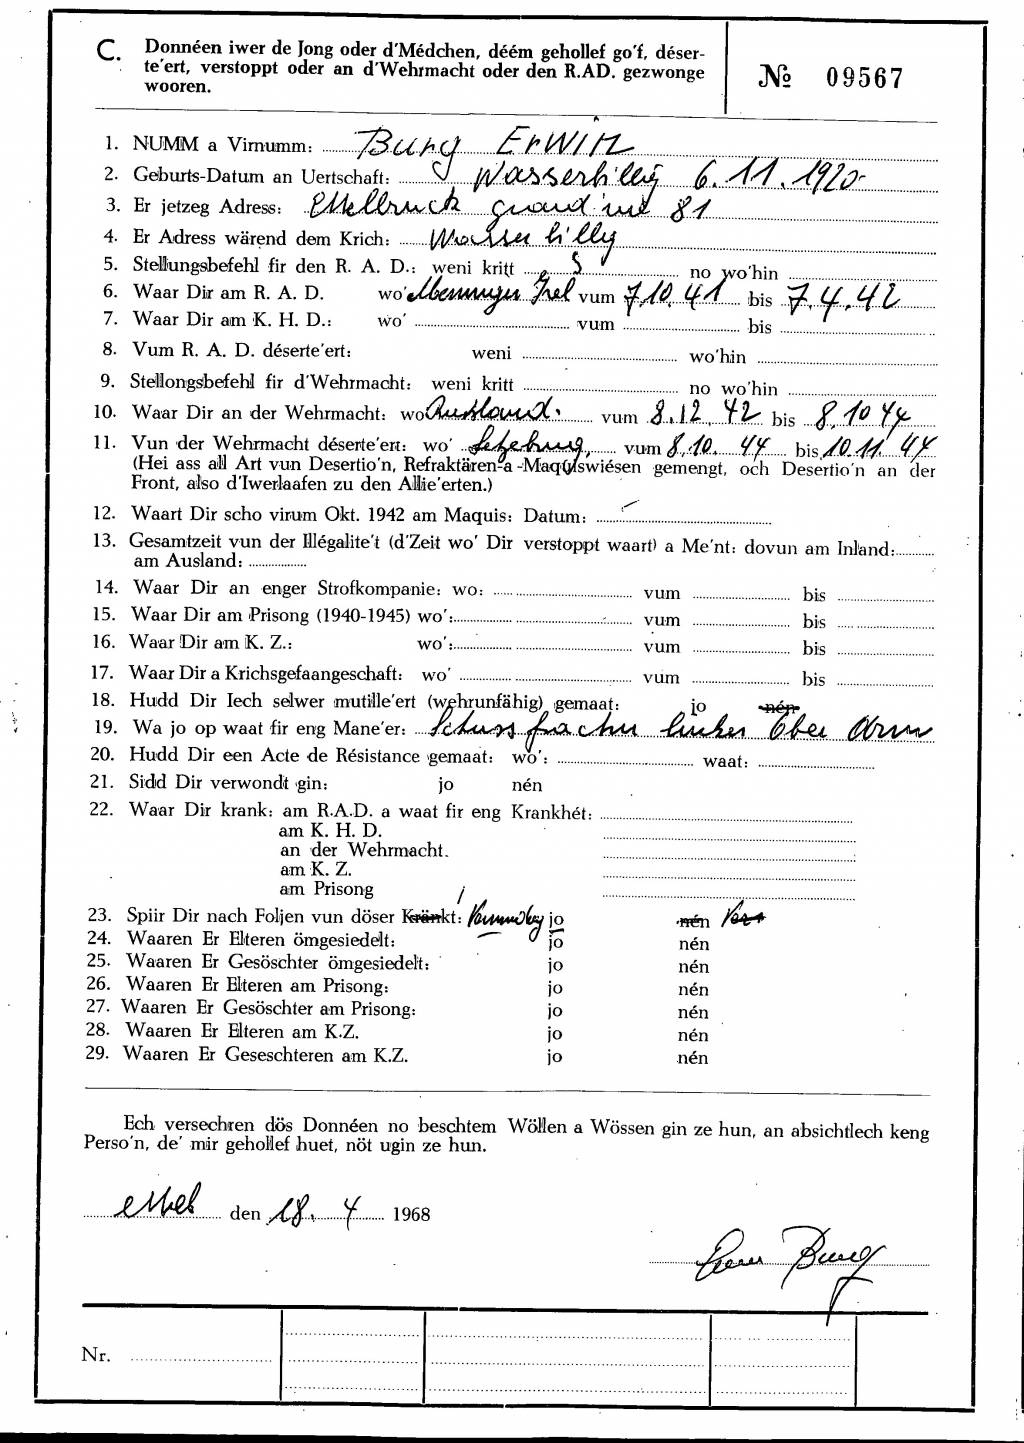 C. Donnéen iwer de Jong oder d'Médchen, déém gehollef go'f, déser-
te'ert, verstoppt oder an d'Wehrmacht oder den R.AD. gezwonge
wooren.
№ 09567
1. NUMM a Virnumm: Burg Erwin
2. Geburts-Datum an Uertschaft: Wasserbillig 6.11.1920
3. Er jetzeg Adress: Ettelbruck grand'rue 81
4. Er Adress wärend dem Krich: Wasserbillig
5. Stellungsbefehl fir den R. A. D.: weni kritt no wo'hin
6. Waar Dir am R. A. D. wo' Irel vum 7.10.41 bis 7.4.42
7. Waar Dir am K. H. D.: wo' vum bis
8. Vum R. A. D. déserte'ert: weni wo'hin
9. Stellongsbefehl fir d'Wehrmacht: weni kritt no wo'hin
10. Waar Dir an der Wehrmacht: wo Russland. vum 8.12.42 bis 8.10 44
11. Vun der Wehrmacht déserte'ert: wo' Letzeburg, vum 8.10. 44 bis 10.11. 44
(Hei ass all Art vun Desertio'n, Refraktären-a -Maquiswiésen gemengt, och Desertio'n an der
Front, also d'Iwerlaafen zu den Allie'erten.)
12. Waart Dir scho virum Okt. 1942 am Maquis: Datum:
13. Gesamtzeit vun der Illégalite't (d'Zeit wo' Dir verstoppt waart) a Me'nt: dovun am Inland:
am Ausland:
14. Waar Dir an enger Strofkompanie: wo: vum bis
15. Waar Dir am Prisong (1940-1945) wo': vum bis
16. Waar Dir am K. Z.: wo': vum bis
17. Waar Dir a Krichsgefaangeschaft: wo' vum bis
18. Hudd Dir Iech selwer mutille'ert (wehrunfähig) gemaat: jo nén
19. Wa jo op waat fir eng Mane'er: Schuss linker Ober Arm
20. Hudd Dir een Acte de Résistance gemaat: wo': waat:
21. Sidd Dir verwondt gin: jo nén
22. Waar Dir krank: am R.A.D. a waat fir eng Krankhét:
am K. H. D.
an der Wehrmacht.
am K. Z.
am Prisong
23. Spiir Dir nach Foljen vun döser Kränkt: jo nén
24. Waaren Er Elteren ömgesiedelt: jo nén
25. Waaren Er Gesöschter ömgesiedelt: jo nén
26. Waaren Er Elteren am Prisong: jo nén
27. Waaren Er Gesöschter am Prisong: jo nén
28. Waaren Er Elteren am K.Z. jo nén
29. Waaren Er Geseschteren am K.Z. jo nén
Ech versechren dös Donnéen no beschtem Wöllen a Wössen gin ze hun, an absichtlech keng
Perso'n, de' mir gehollef huet, nöt ugin ze hun.
Ettelb den 18. 4 1968
Burg
Nr.